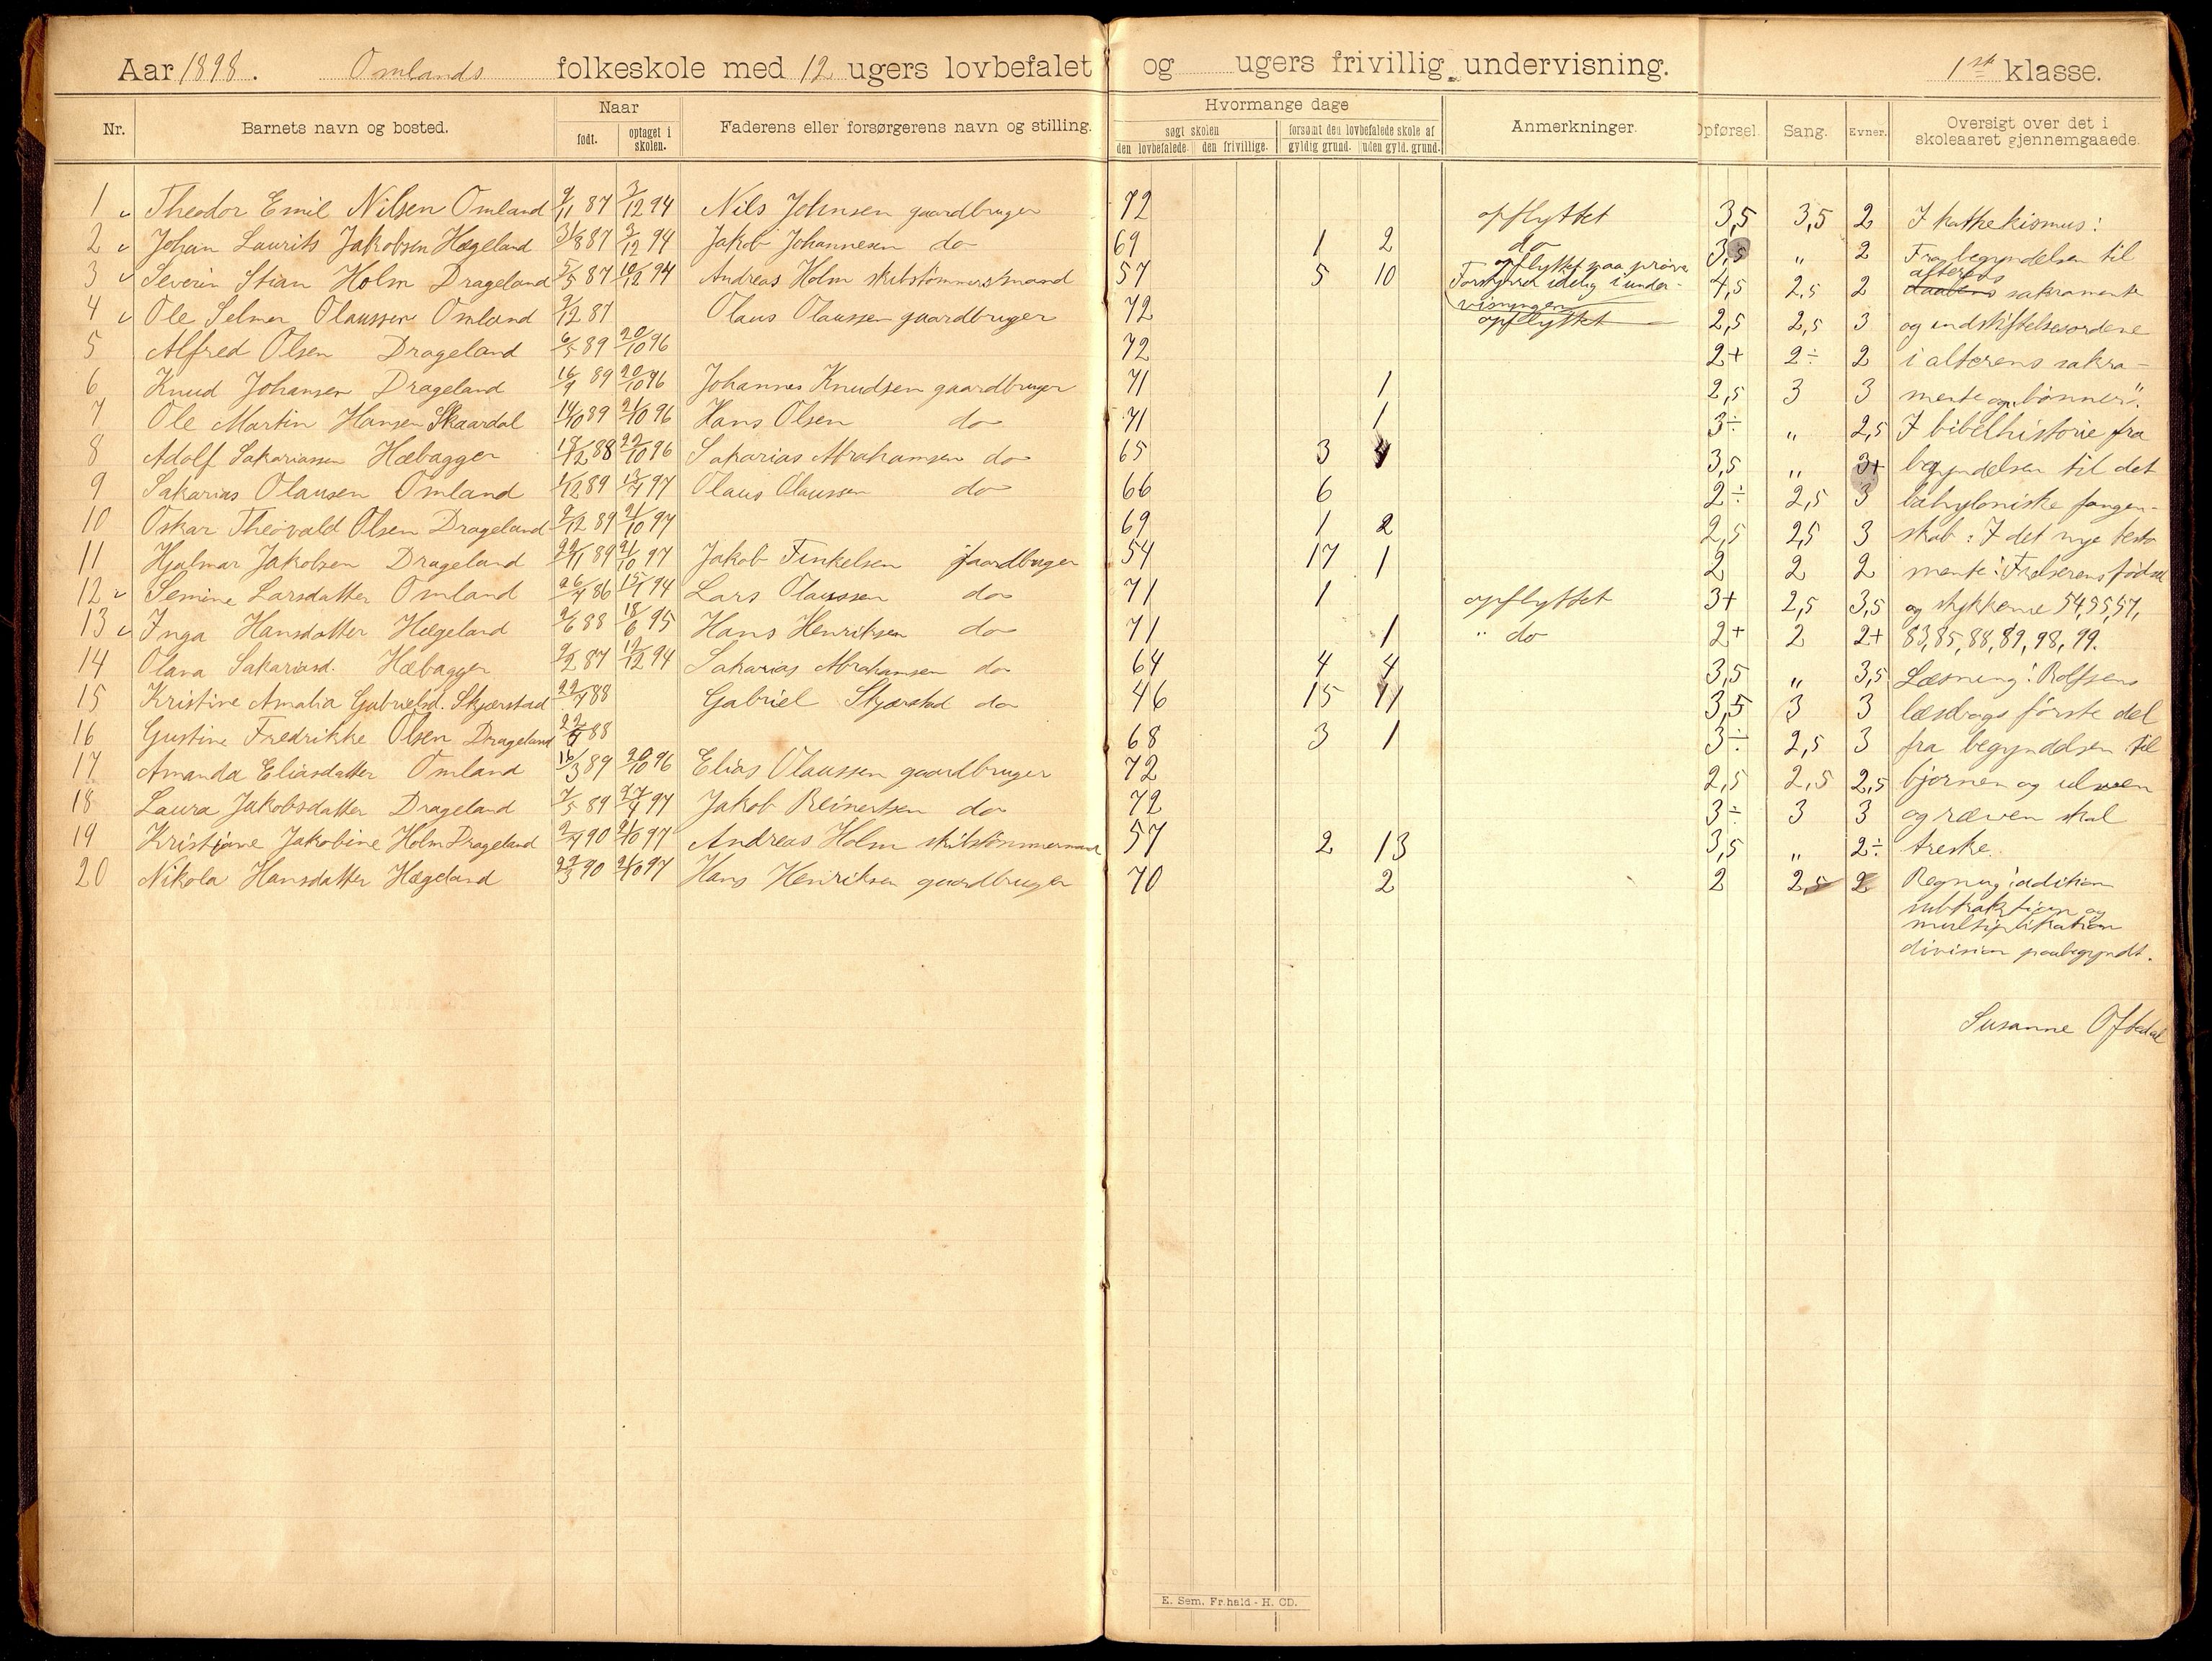 Aar 1898. Omlands folkeskole med 12 ugers lovbefalet og ugers frivillig undervisning. 1ste klasse.
Nr. Barnets navn og bosted. Naar født. optaget i skolen. Faderens eller forsørgerens navn og stilling. Hvormange dage søgt skolen den lovbefalede. den frivillige. forsømt den lovbefalede skole af gyldig grund. uden gyld. grund. Anmerkninger. Opførsel. Sang. Evner. Oversigt over det i skoleaaret gjennemgaaede.
1 Theodor Emil Nilsen Omland 9/11 87 3/12 94 Nils Johnsen gaardbruger 72 opflyttet 3,5 3,5 2 I kathekismus:
2 Johan Laurits Jakobsen Hægeland 31/8 87 3/12 94 Jakob Johannesen do 69 1 2 do 3,5 „ 2 Fra begyndelsen til
3 Severin Stian Holm Drageland 5/5 87 10/12 94 Andreas Holm skibstømmersmand 57 5 10 opflyttet paa prøve Forstyrrer idelig i undervisningen 4,5 2,5 2 alterens sakramente
4 Ole Selmer Olaussen Omland 9/12 87 Olaus Olaussen gaardbruger 72 opflyttet 2,5 2,5 3 og indstiftelsesordene
5 Alfred Olsen Drageland 6/5 89 20/10 96 72 2+ 2÷ 2 i alterens sakra-
6 Knud Johansen Drageland 16/9 89 20/10 96 Johannes Knudsen gaardbruger 71 1 2,5 3 3 mente og „bønner".
7 Ole Martin Hansen Skaardal 14/10 89 21/10 96 Hans Olsen do 71 1 3÷ „ 2,5 I bibelhistorie fra
8 Adolf Sakariassen Hæbagger 18/12 88 22/10 96 Sakarias Abrahamsen do 65 3 4 3,5 „ 3+ begyndelsen til det
9 Sakarias Olausen Omland 1/12 89 13/7 97 Olaus Olaussen do 66 6 2÷ 2,5 3 babyloniske fangen-
10 Oskar Theovald Olsen Drageland 9/12 89 21/10 97 69 1 2 2,5 2,5 3 skab: I det nye testa
11 Hjalmar Jakobsen Drageland 22/11 89 21/10 97 Jakob Finkelsen gaardbruger 54 17 1 2 2 2 mente: Frelserens fødsel
12 Semine Larsdatter Omland 26/7 86 15/1 94 Lars Olaussen do 71 1 opflyttet 3+ 2,5 3,5 og stykkerne 54,55,57,
13 Inga Hansdatter Hægeland 2/6 88 18/6 95 Hans Henriksen do 71 1 " do 2+ 2 2+ 83,85,88,89,98,99.
14 Olava Sakariasd. Hæbagger 9/2 87 12/12 94 Sakarias Abrahamsen do 64 4 4 3,5 „ 3,5 Læsning: Rolfsens
15 Kristine Amalia Gabrielsd. Skjærstad 22/7 88 Gabriel Skjærstad do 46 15 11 3,5 3 3 læsebogs første del
16 Gustine Fredrikke Olsen Drageland 22/7 88 68 3 1 3÷ 2,5 3 fra begyndelsen til
17 Amanda Eliasdatter Omland 16/3 89 20/10 96 Elias Olaussen gaardbruger 72 2,5 2,5 2,5 bjørnen og ulven
18 Laura Jakobsdatter Drageland 7/5 89 27/9 97 Jakob Reinertsen do 72 3÷ 3 3 og ræven skal
19 Kristiane Jakobine Holm Drageland 2/7 90 21/10 97 Andreas Holm skibstømmermand 57 2 13 3,5 „ 2÷ treske.
20 Nikola Hansdatter Hægeland 22/3 90 21/10 97 Hans Henriksen gaardbruger 70 2 2 2,5 2 Regning: adition
subtraktion og
multiplikation
division paabegyndt.
Susanne Oftedal
E. Sem. Fr.hald - H. CD.